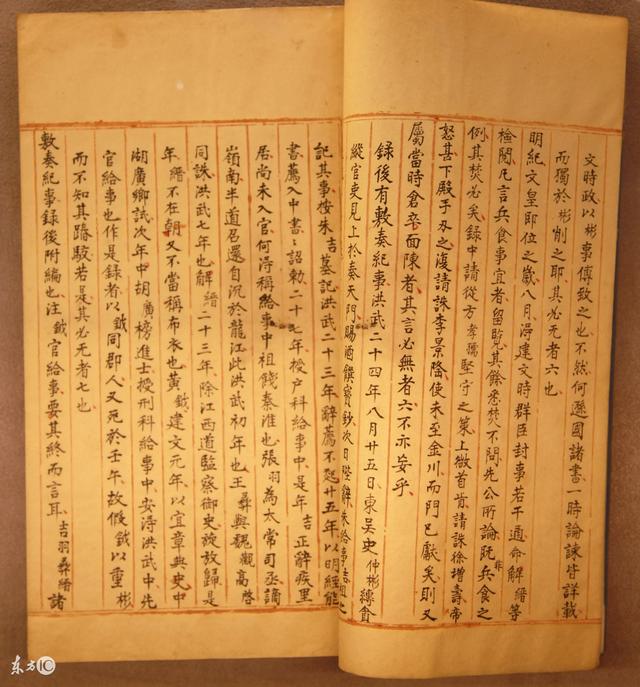 文時政以彬事傅致之也不然何遜國諸書一時論諫皆詳載
而獨於彬削之耶其必无者六也
明紀文皇即位之歲八月淂建文時群臣封事若干通命解縉等
檢閱凡言兵食事宜者留覧其餘悉焚不問先公所論旣非兵食之
例其焚必矣録中請從方孝孺堅守之策上微首肯請誅徐增壽帝
怒甚下殿手刃之復請誅李景隆使未至金川而門已獻矣則又
屬當時倉卒面陳者其言必無者六不亦妄乎
録後有敷奏紀事洪武二十四年八月廿五日東吳史仲彬縳貪
縱官吏見上於奏天門賜酒饌寳鈔次日陛辭朱給事吉祖之
記其事按朱吉墓記洪武二十三年辭薦不起廿五年以明經能
書薦入中書〻詔勅二十七年授户科給事中是年吉正辭疾里
居尚未入官何淂稱給事中祖餞秦淮也張羽為太常司丞謫
嶺南半道召還自沉於龍江此洪武初年也王彞與魏觀高啓
同誅洪武七年也解縉二十三年除江西道監察御史旋放歸是
年縉不在朝又不當稱布衣也黃鉞建文元年以宜章典史中
湖廣鄉試次年中胡廣榜進士授刑科給事中安淂洪武中先
官給事也作是録者以鉞同郡人又死於壬午故假鉞以重彬
而不知其踳駁若是其必无者七也
敷奏紀事録後附編也注鉞官給事要其終而言耳吉羽彞縉諸
东方IC